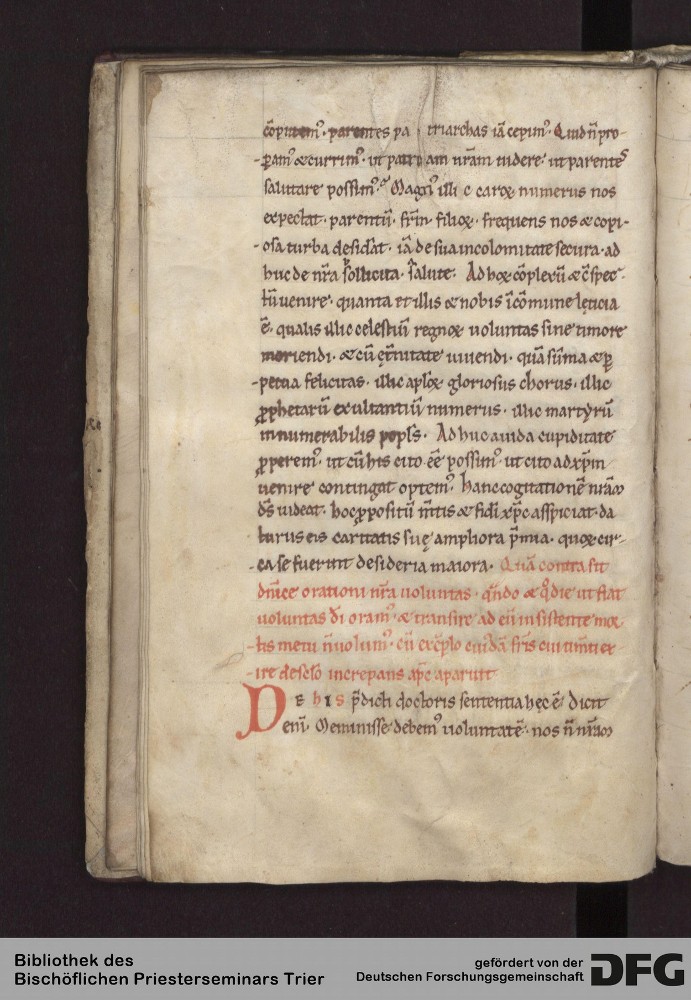 cōputem᷒ · parentes pa triarchas iā cepim᷒ · Quid n̄ pro-
ꝑam᷒ & currim᷒ · ut patriam nr̄am uidere · ut parentes
salutare possim᷒ · Magn᷒ illic caroꝝ numerus nos
expectat · parentū · fr̄m · filioꝝ · frequens nos & copi-
osa turba desid̄at · iā de sua incolomitate secura · ad
huc de nr̄a sollicita · salute · Ad hoꝝ cōplexū & c̄spec-
tū uenire · quanta et illis & nobis ī cōmune lęticia
ē · qualis illic celestiū regnoꝝ uoluntas sine timore
moriendi · & cū ęt̄nitate uiuendi · quā sūma & ꝑ-
petua felicitas · illic apl̄oꝝ gloriosus chorus · illic
ꝓphetarū exultantiū numerus · illic martyrū
innumerabilis popl̄s · Ad huc auida cupiditate
ꝓperem᷒ · ut cū his cito eē possim᷒ · ut cito ad xp̄m
uenire contingat optem᷒ · hanc cogitationē nr̄am
ds̄ uideat · hoc ꝓpositū m̄tis & fidi xp̄c aspiciat · da
turus eis caritatis suę ampliora p̄mia · quoꝝ cir-
ca se fuerint desideria maiora · Quā contra sit
dn̄ice orationi nr̄a uoluntas · qn̄do & q̊die ut fiat
uoluntas dī oram᷒ · & transire ad eū insistente mor
tis metu n̄ uolum᷒ · cū exēplo cuidā fr̄is cui tim̄ti ex-
ire de sc̄lo increpans xp̄c aparuit
De his p̄dicti doctoris sententia hęc ē · dicit
enī · Meminisse debem᷒ uoluntatē · nos n̄ nr̄am
Ro
Bibliothek des
Bischöflichen Priesterseminars Trier
gefördert von der
Deutschen Forschungsgemeinschaft
DFG